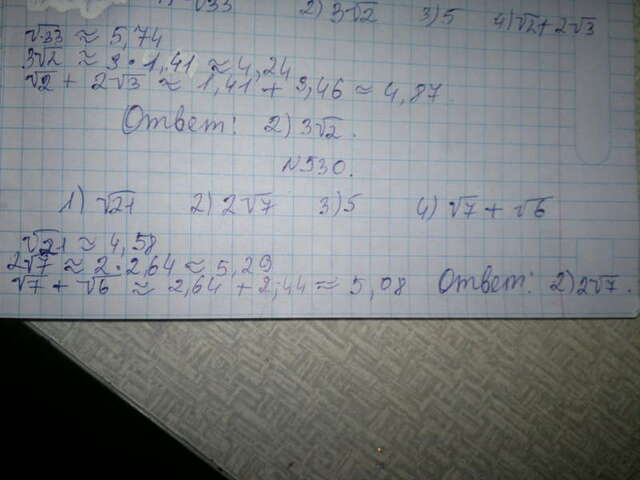 √33 2) 3√2 3) 5 4) √2 + 2√3
√33 ≈ 5,74
3√2 ≈ 3 · 1,41 ≈ 4,24
√2 + 2√3 ≈ 1,41 + 3,46 ≈ 4,87.
Ответ: 2) 3√2.
№530.
1) √21 2) 2√7 3) 5 4) √7 + √6
√21 ≈ 4,58
2√7 ≈ 2 · 2,64 ≈ 5,29
√7 + √6 ≈ 2,64 + 2,44 ≈ 5,08 Ответ: 2) 2√7.